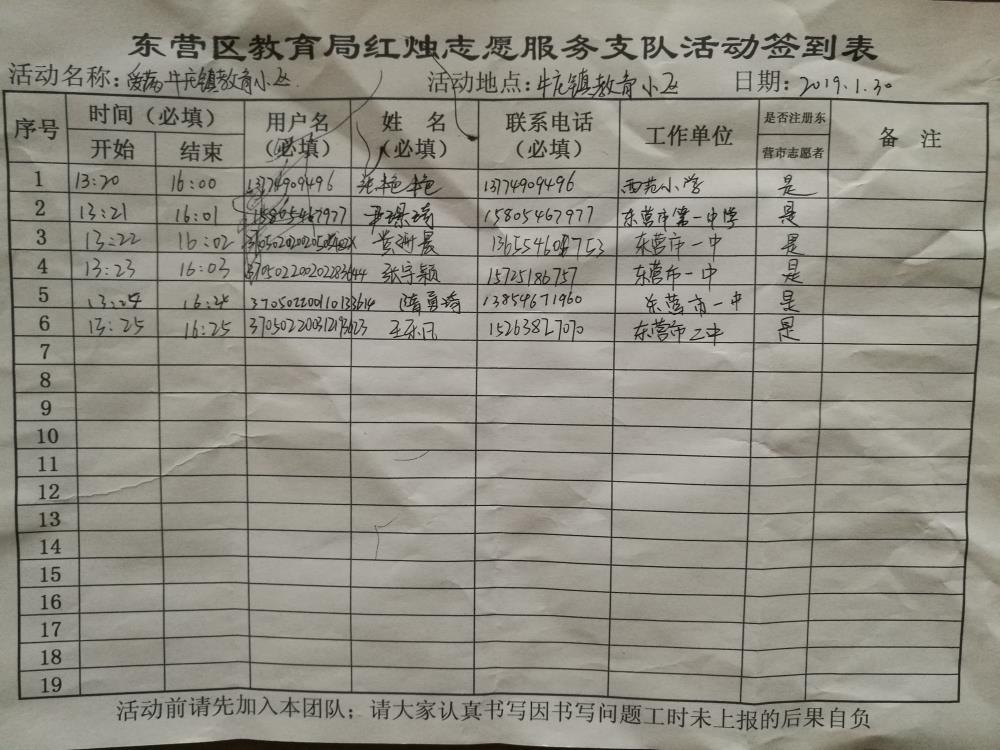 东营区教育局红烛志愿服务支队活动签到表
活动名称：牛庄镇教育小区 活动地点：牛庄镇教育小区 日期：2019.1.30
序号 时间（必填） 用户名（必填） 姓 名（必填） 联系电话（必填） 工作单位 是否注册东营市志愿者 备 注
开始 结束
1 13:20 16:00 13774909496 张艳艳 13774909496 西苑小学 是
2 13:21 16:01 15805467977 15805467977 东营市第一中学 是
3 13:22 16:02 黄 晨 东营市一中 是
4 13:23 16:03 张宇颖 15725186757 东营市一中 是
5 13:24 16:24 370502200110133614 隋勇 13854671960 东营市一中 是
6 13:25 16:25 王乐凡 15263827070 东营市二中 是
7
8
9
10
11
12
13
14
15
16
17
18
19
活动前请先加入本团队；请大家认真书写因书写问题工时未上报的后果自负